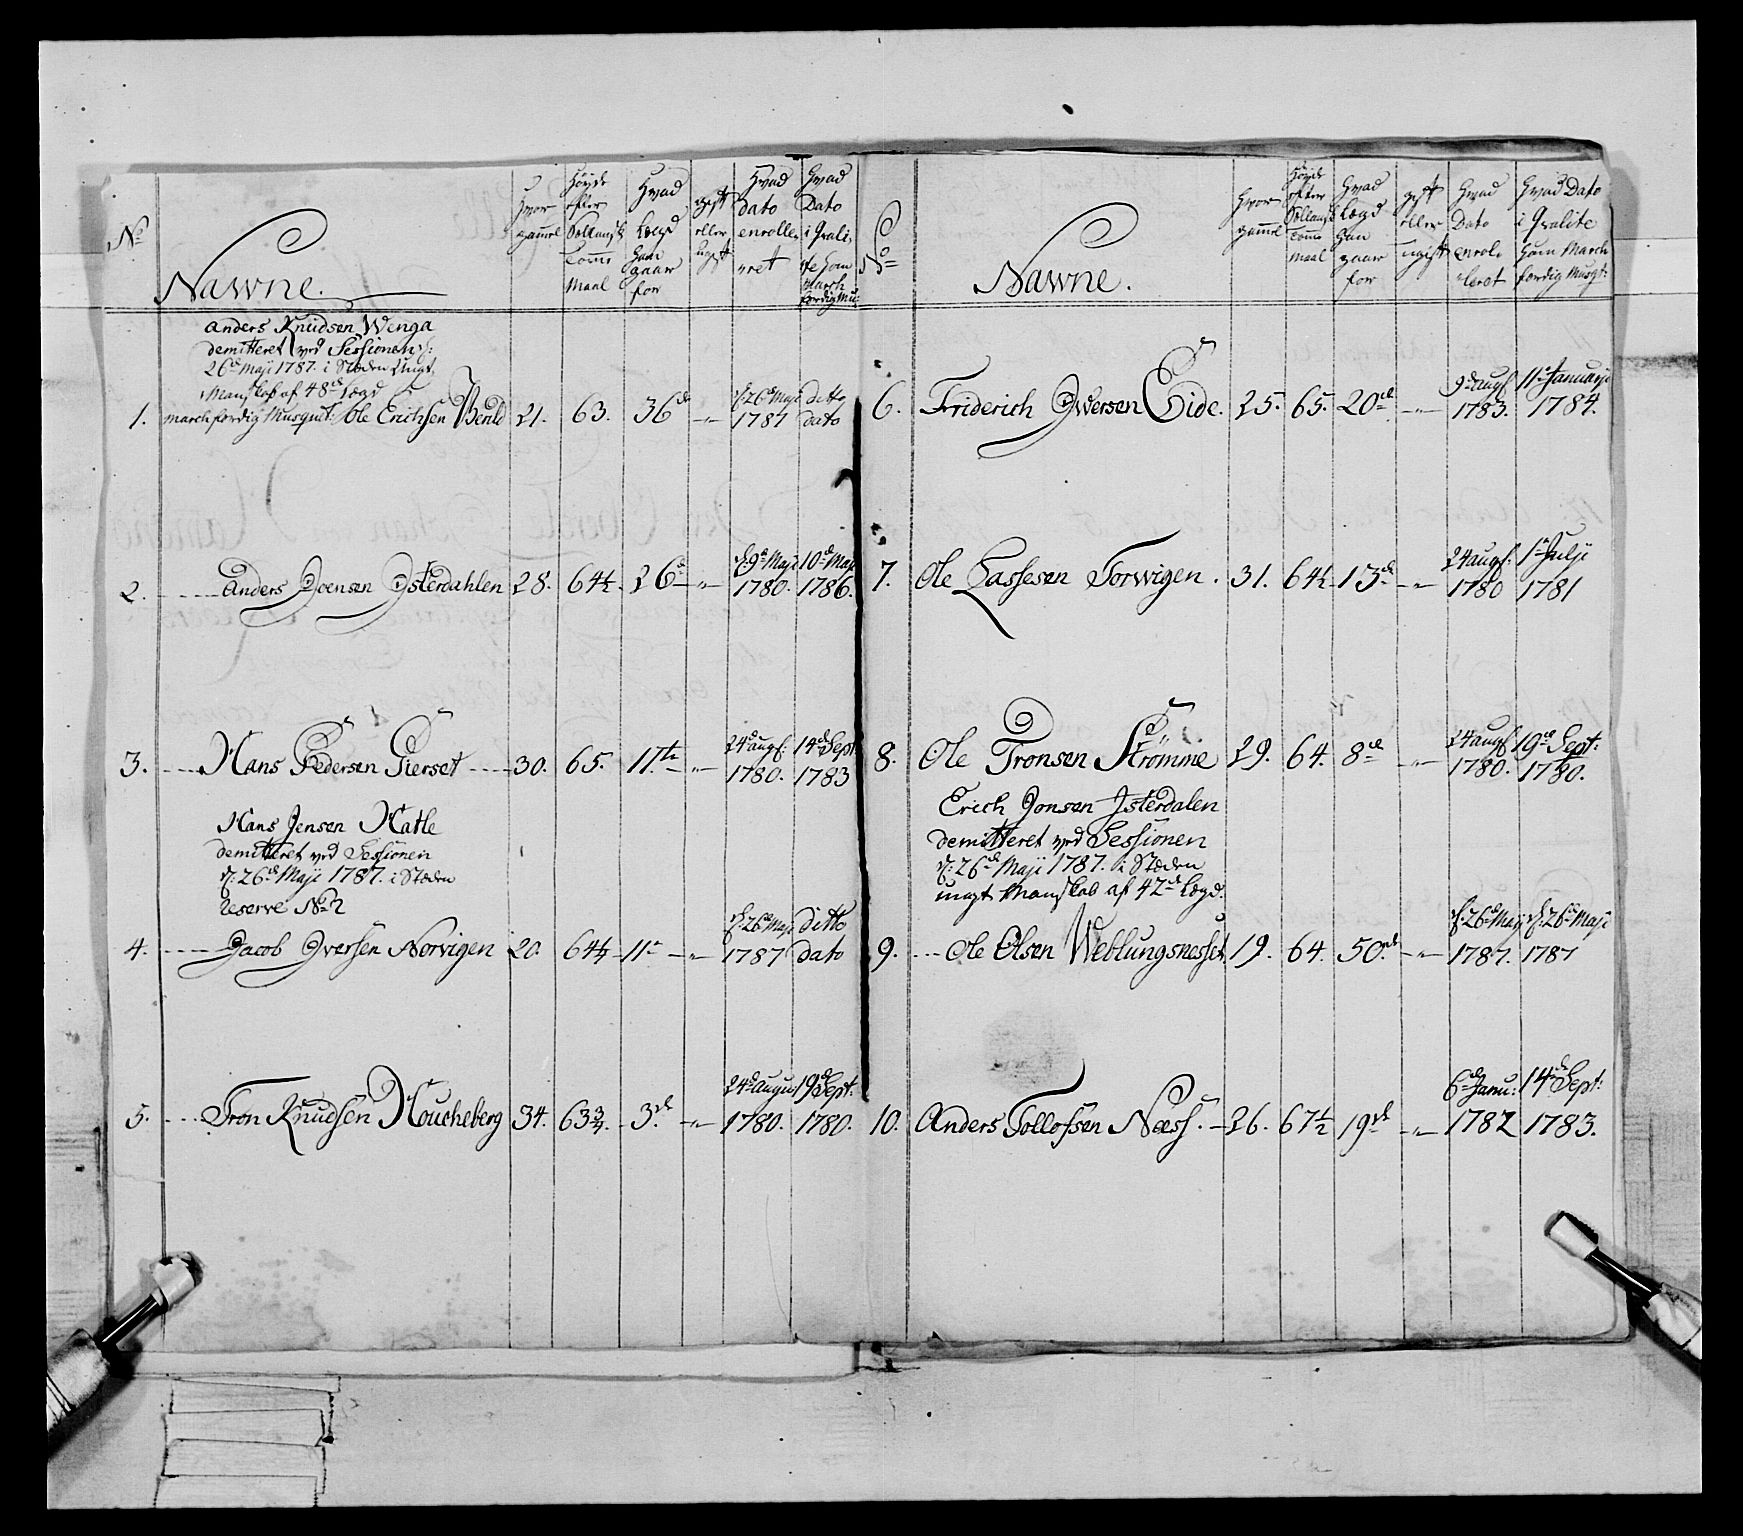 No
Nawne.
Hvor gamel
Høyde efter Sellansk Tomme Maal
Hvad Lægd han gaar for
gift eller ugift
Hvad dato enrolleret
Hvad Dato i Qvalite som March færdig Mu:
Anders Knudsen Wenga
demitteret ved Sessionen d:
26de Maji 1787. i Stæden Ungt
Manskab af 48de Lægd
1. marchfærdig Musquet: Ole Erichsen 21. 63. 36de -"- d: 26de Maji 1787 ditto dato
2. Anders Joensen Isterdahlen 28. 64½. 26de -"- d: 9de Maji 1780. 10de Maji 1786.
3. Hans Pedersen Gierset 30. 65. 11te -"- 24de augs: 1780. 14de Sept 1783
Hans Jensen Hatle
demitteret ved Sessionen
d: 26de Maji 1787. i Stæden
Reserve No 2
4. Jacob Iversen Norvigen 20. 64½ 11te -"- d: 26de Maji 1787 ditto dato
5. Tron Knudsen Houcheberg 34. 63¾. 3de -"- 24de augus 1780. 19de Sept: 1780.
No
Nawne.
Hvor gamel
Høyde efter Sellansk Tomme Maal
Hvad Lægd han gaar for
gift eller ugift
Hvad Dato enrolleret
Hvad Dato i Qvalite som March færdig Musqt:
6. Friderich Iversen Eide. 25. 65. 20de -"- 9de augs 1783. 11te Januarji 1784.
7. Ole Lassesen Torwigen. 31. 64½. 13de -"- 24 augs: 1780 1te Julji 1781
8. Ole Tronsen Strømme 29. 64. 8de -"- 24 augs 1780. 19de Sept: 1780.
Erich Jonsen Isterdalen
demitteret ved Sessionen
d: 26de Maji 1787. i Stæden
ungt Manskab af 42de Lægd.
9. Ole Olsen Weblungsnesset 19. 64. 50de -"- d: 26de Maji 1787. d: 26de Maji 1787
10. Anders Tollofsen Næss. 26. 67½ 19de -"- 6de Janu: 1782 14de Sept: 1783.